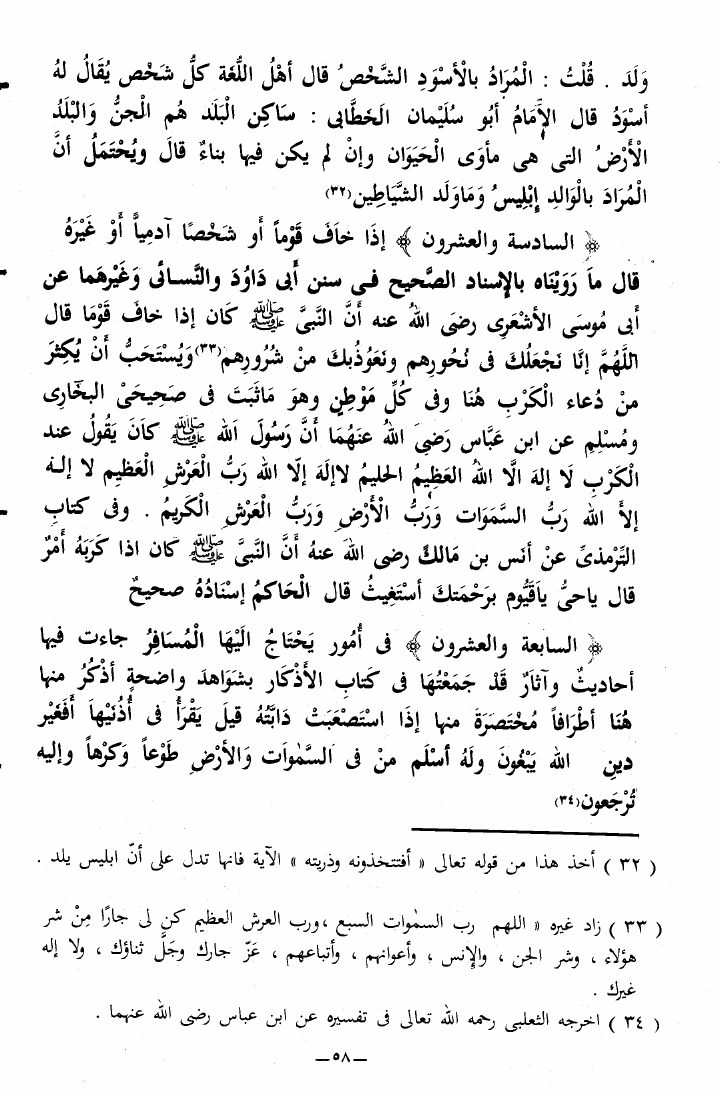 وَلَدَ . قُلْتُ : الْمُرَادُ بالْأَسْوَدِ الشَّخْصُ قال أهْلُ اللُّغَة كلُّ شَخْص يُقَالُ لهُ
أسْوَدُ قال الإمَامُ أبُو سُلَيْمان الخَطَّابى : سَاكِن الْبَلَد هُم الْجنُّ وَالْبَلَدُ
الْأَرْضُ التى هى مأوَى الْحَيَوَان وإنْ لم يكن فيها بناءٌ قالَ ويُحْتَملُ أنَّ
الْمُرَادَ بالْوَالِدِ إِبْلِيسُ وَمَاوَلَد الشَّيَاطِين(٣٢)
﴿ السادسة والعشرون ﴾ إذَا خافَ قَوْماً أو شَخْصًا آدمِياً أَوْ غَيْرَهُ
قال ماَ رَوَيْنَاه بالإسناد الصَّحيح فى سنن أبى دَاوُدَ والنَّسائى وَغَيْرهَما عن
أبى مُوسَى الأشْعَرِى رضىَ اللهُ عنه أنَّ النبىَّ ﷺ كَان إذا خافَ قَوْمًا قال
اللَّهُمَّ إنَّا نَجْعَلُكَ فى نُحُورِهم ونَعَوُذُبكَ منْ شُرُورِهم(٣٣)وَيُسْتَحَبُّ أنْ يُكثِرَ
منْ دُعاء الْكَرْبِ هُنَا وفى كُلِّ مَوْطِنٍ وهوَ مَاثَبَتَ فى صَحِيحَىْ البخَارِى
ومُسْلِمِ عن ابن عَبَّاس رَضِىَ اللهُ عنهُمَا أنَّ رَسُولَ اَلله ﷺ كاَنَ يَقُولُ عند
الْكَرْبِ لَا إلهَ الَّا اللهُ العَظِيمُ الحليمُ لاإلَهَ إلّا الله رَبُّ العَرْشِ الْعَظِيم لا إلـهَ
إلاَّ الله رَبُّ السَّمَوَات وَرَبُّ الْأَرْضِ وَرَبُّ العَرْشِ الْكَريمُ . وفى كتابِ
التِّرْمذىِّ عنْ أنَس بن مَالكٌ رضى اللهَ عنهُ أنَّ النبىَّ ﷺ كان اذا كَرَبَهُ أَمْرٌ
قال ياحىُّ ياَقَيُّوم برَحْمَتكَ أسْتَغِيثُ قال الْحَاكمُ إسْنَادُهُ صحيحٌ
﴿ السابعة والعشرون ﴾ فى أُمُور يَحْتَاجُ الَيْهَا الْمُسَافِرُ جاءت فيها
أحاديثٌ وآثارٌ قَدْ جَمَعْتُهَا فى كتَابِ الأَذْكَار بشَوَاهدَ واضحةٍ أذْكُرُ منها
هُنَا أطْرَافاً مُخْتَصَرَةَ منها إذَا اسْتَصْعَبَتْ دَابَّتُهُ قيلَ يَقْرَأُ فى أُذُنَيْهاَ أَفَغَيْر
دينِ الله يَبْغُونَ ولَهُ أسْلَم منْ فى السَّمٰوَات وَالأَرْضِ طَوْعاً وكَرْهاً وإليه
تُرْجَعون(٣٤)
( ٣٢ ) أخذ هذا من قوله تعالى « أفتتخذونه وذريته » الآية فانها تدل على أنّ ابليس يلد .
( ٣٣ ) زاد غيره « اللهم رب السمٰوات السبع ،ورب العرش العظيم كن لى جارًا مِنْ شر
هؤلاء ، وشر الجن ، والإنس ، وأعوانهم ، وأتباعهم ، عَزّ جارك وجَلَّ ثناؤك ، ولا إله
غيرك .
( ٣٤ ) اخرجه الثعلبي رحمه الله تعالى فى تفسيره عن ابن عباس رضى الله عنهما .
—٥٨—